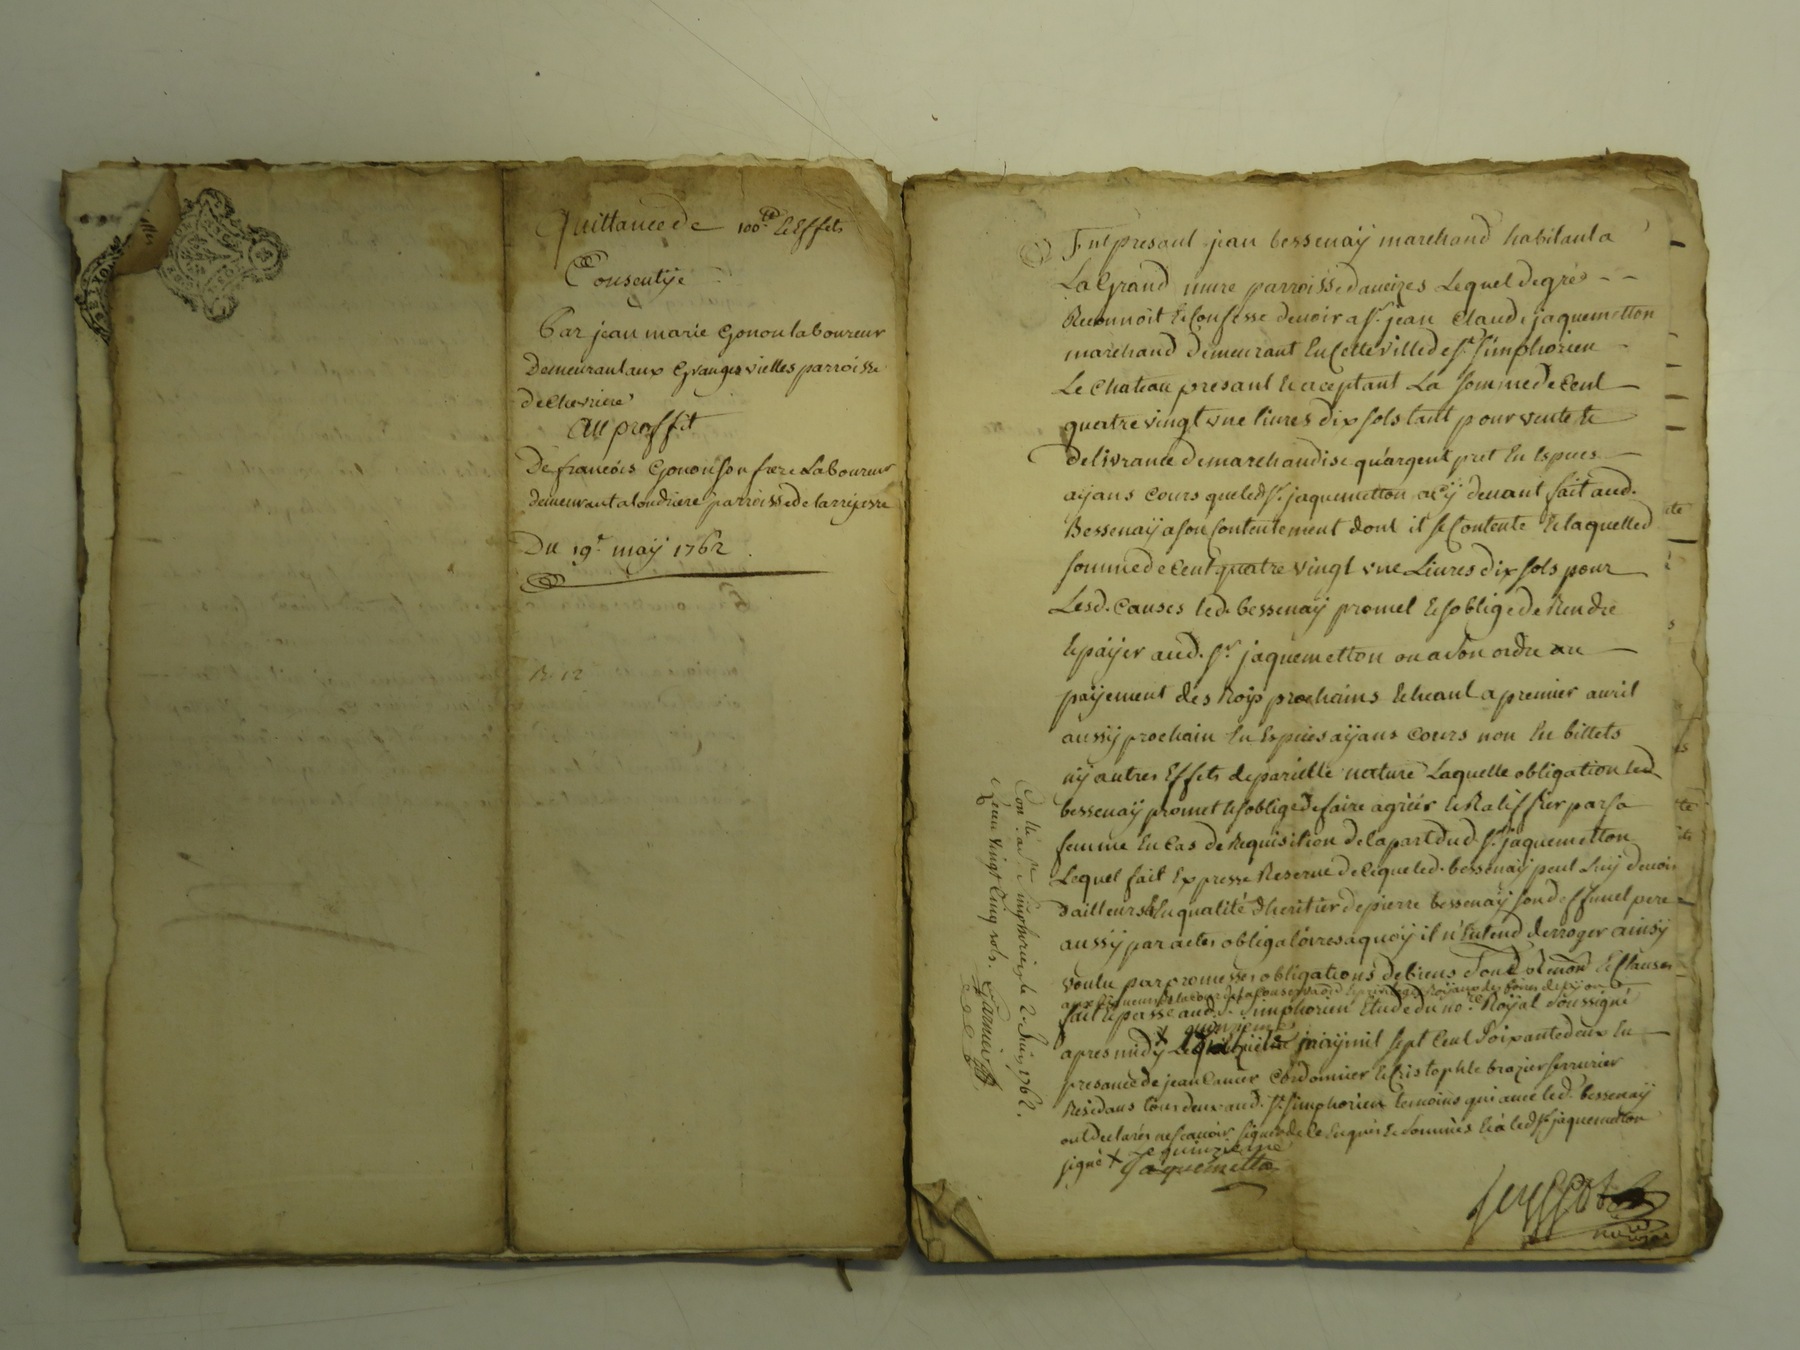 Quittance de 100.# & Effets
Consentye
Par jean marie Gonon laboureur
Demeurant aux Granges vielles parroisse
de chevriere
Au proffit
De francois Gonon son frere Laboureur
demeurant a londriere parroisse de larrejasse
Du 19.e may 1762
Fut presant jean bessenaÿ marchand habitant a
La Grand mure parroisse daveizes Lequel de gré
Reconnoit & Confesse devoir a Sr. jean Claude jaquemetton
marchand demeurant En Cette ville de St. Simphorien
Le Chateau presant & aceptant La somme de Cent
quatre vingt une livres dix sols tant pour vente &
delivrance de marchandise qu'argent pret En Espèces
aÿans Cours que led. Sr. jaquemetton a cÿ devant fait aud.
Bessenaÿ a son Contentement dont il se Contente & laquelle d.
somme de Cent quatre vingt une Livres dix sols pour
Lesd. Causes led. bessenaÿ promet & soblige de Rendre
& païer aud. Sr. jaquemetton ou a son ordre au
païement des Roys prochains Echeant a premier avril
aussÿ prochain En Espèces aÿans Cours non En billets
nÿ autres Effets de pareille nature Laquelle obligation led.
bessenaÿ promet & soblige de faire agréer & Ratiffier par sa
femme En Cas de Requisition de la part dud. Sr. jaquemetton
Lequel fait Expresse Reserve de ce que led. bessenaÿ peut Luÿ devoir
dailleurs En qualité d'heritier de pierre bessenaÿ son deffunct pere
aussÿ par actes obligatoires a quoÿ il n'Entend derroger ainsÿ
voulu par promesses obligations de biens & Clauses
aux de la Conservation Royaux des foires de Lyon
fait & passé aud. St. Simphorien Etude du no.re Roÿal soussigné
apres midÿ X quinzieme maÿ mil sept Cent soixante deux En
presance de jean Cordonnier & Cristophle brazier serrurier
Residans tous deux aud. St. Simphorien temoins qui avec led. bessenaÿ
ont declarés ne scavoir signer de ce Enquis & sommés & a led. Sr. jaquemetton
signé X Le quinzieme
Jaquemetton
Con.llé a St. Simphorien le 2. Juin 1762.
Reçu vingt Cinq sols.